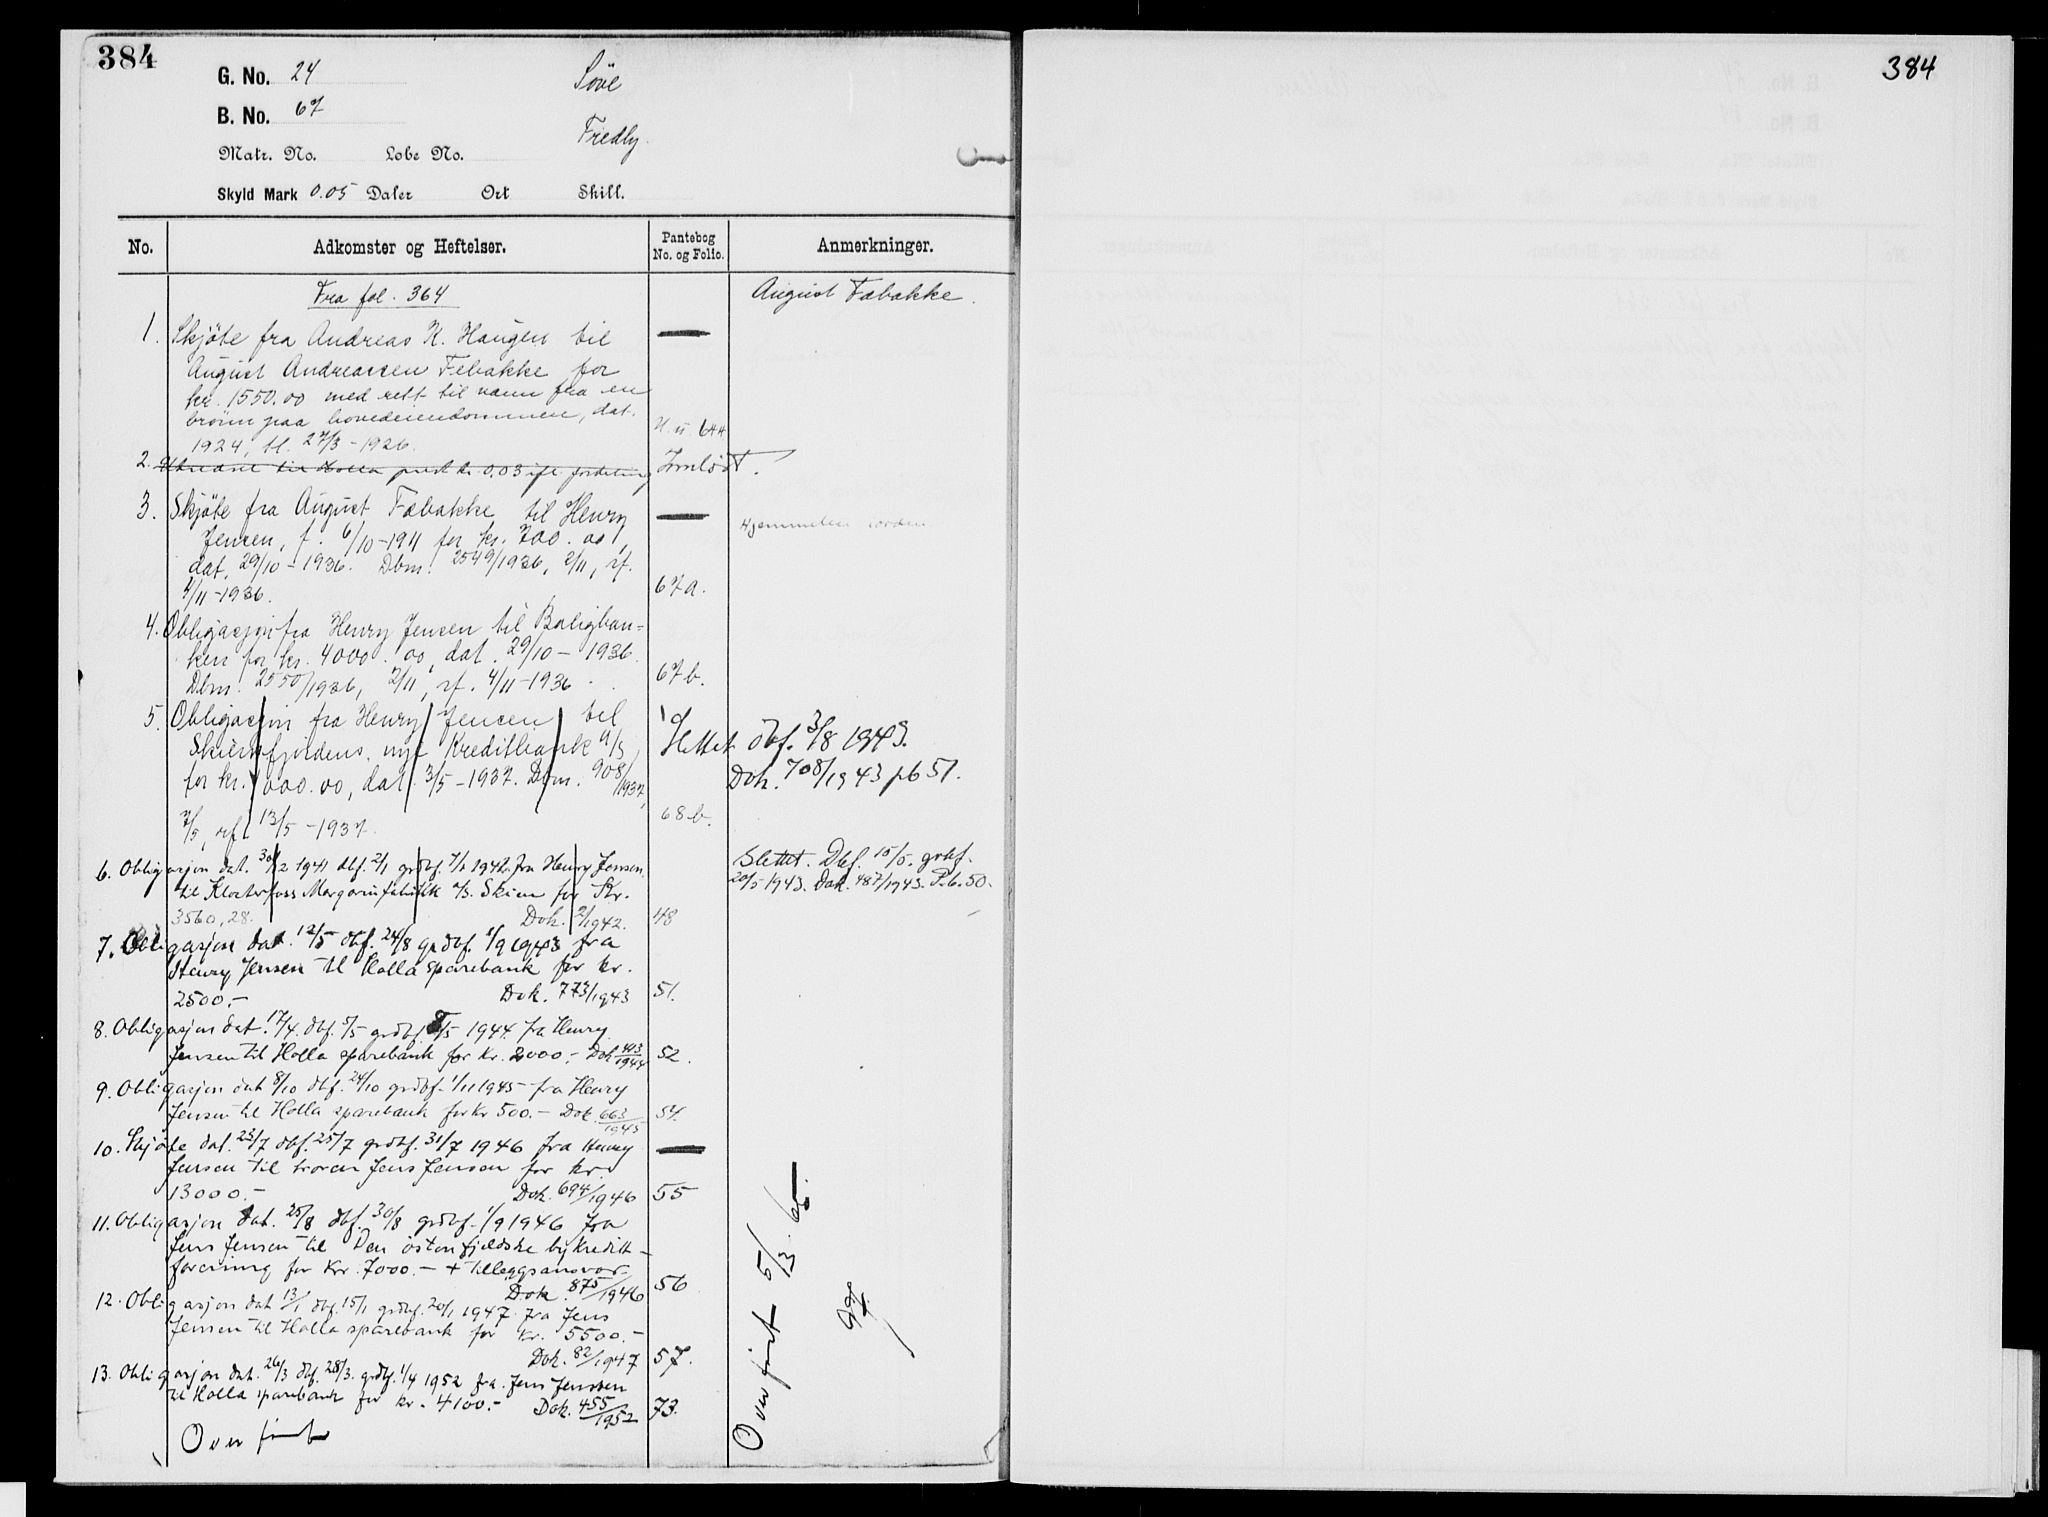 384
G. No. 24 Söve
B. No. 67
Fredly.
Matr. No. Lobe No.
Skyld Mark 0.05 Daler Ort Skill.
No. Adkomster og Heftelser. Pantebog No. og Folio. Anmerkninger.
Fra fol. 364 August Febakke.
1. Skjöte fra Andreas K. Haugen til
August Andreassen Febakke for
kr. 1550.00 med rett til vann fra en
brönn paa hovedeiendommen, dat.
1924, tl. 27/3-1926. 644
2. til Holla kr. 0.03 Innlöst.
3. Skjöte fra August Fæbakke til Henry
Jensen, f. 6/10-1911 for kr. 700.00,
dat. 29/10-1936. Dbm. 2549/1936, 2/11, rf.
4/11-1936. 67a.
4. Obligasjon fra Henry Jensen til Boligban-
ken for kr. 4000.00, dat. 29/10-1936.
Dbm. 2550/1936, 2/11, rf. 4/11-1936. 67b.
5. Obligasjon fra Henry Jensen til
Skiensfjordens nye Kreditbank a/s Slettet dbf. 3/8 1943.
for kr. 1000.00, dat. 3/5-1937. Dbm. 908/1937, Dok. 708/1943 pb 51.
7/5, rf. 13/5-1937. 68b.
6. Obligasjon dat. 30/12 1941 dbf. 2/1 grdbf. 7/1 1942 fra Henry Jensen Slettet. Dbf. 15/5. grbf.
til Klosterfoss Margarinfabrikk a/s. Skien for Kr. 20/5 1943. Dok. 487/1943. P.b. 50.
3560,28. Dok. 2/1942. 48
7. Obligasjon dat. 12/5 dbf. 24/8 grdbf. 1/9 1943 fra
Henry Jensen til Holla sparebank for kr.
2500.- Dok. 773/1943 51.
8. Obligasjon dat. 17/4. dbf. 5/5 grdbf. 8/5 1944. fra Henry
Jensen til Holla sparebank for kr. 2000.- Dok 413/1944 52.
9. Obligasjon dat 8/10 dbf. 24/10 grdbf. 1/11 1945 fra Henry
Jensen til Holla sparebank for kr 500.- Dok. 663/1945 54.
10. Skjöte dat. 23/7 dbf. 25/7 grdbf. 31/7 1946 fra Henry
Jensen til broren Jens Jensen for kr.
13000.- Dok. 694/1946 55
11. Obligasjon dat. 25/8 dbf. 30/8 grdbf. 1/9 1946 fra
Jens Jensen til Den östenfjeldske bykreditt-
forening for kr. 7000.- + tilleggsansvar.
Dok. 875/1946 56
12. Obligasjon dat 13/1 dbf. 15/1 grdbf. 20/1 1947 fra Jens
Jensen til Holla sparebank for kr. 5500.-
Dok. 82/1947 57.
13. Obligasjon dat. 26/3 dbf. 28/3. grdbf. 1/4 1952 fra Jens Jensen
til Holla sparebank for kr. 4100.- Dok. 455/1952 73.
Overfört
Overfört 5/3. 65.
384